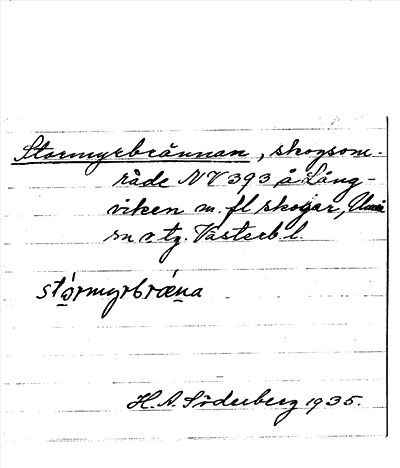 Stormyrbrännan, skogsom-
råde NV 393 å Lång-
viken m. fl skogar, Umeå
sn o tg. Västerb l.
stórmyrbrǽna
H. A. Söderberg 1935.